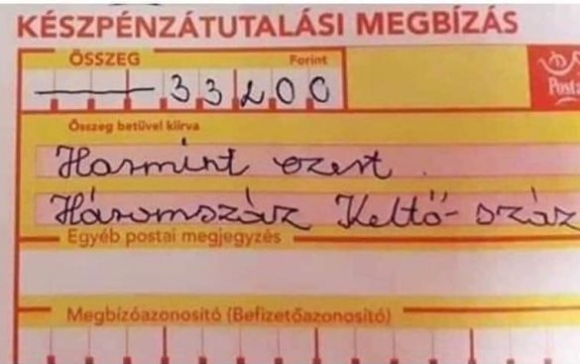 KÉSZPÉNZÁTUTALÁSI MEGBÍZÁS
ÖSSZEG Forint
33200
Posta
Összeg betűvel kiírva
Harmint ezert
Háromszáz Keltő-száz
Egyéb postai megjegyzés
Megbízóazonosító (Befizetőazonosító)